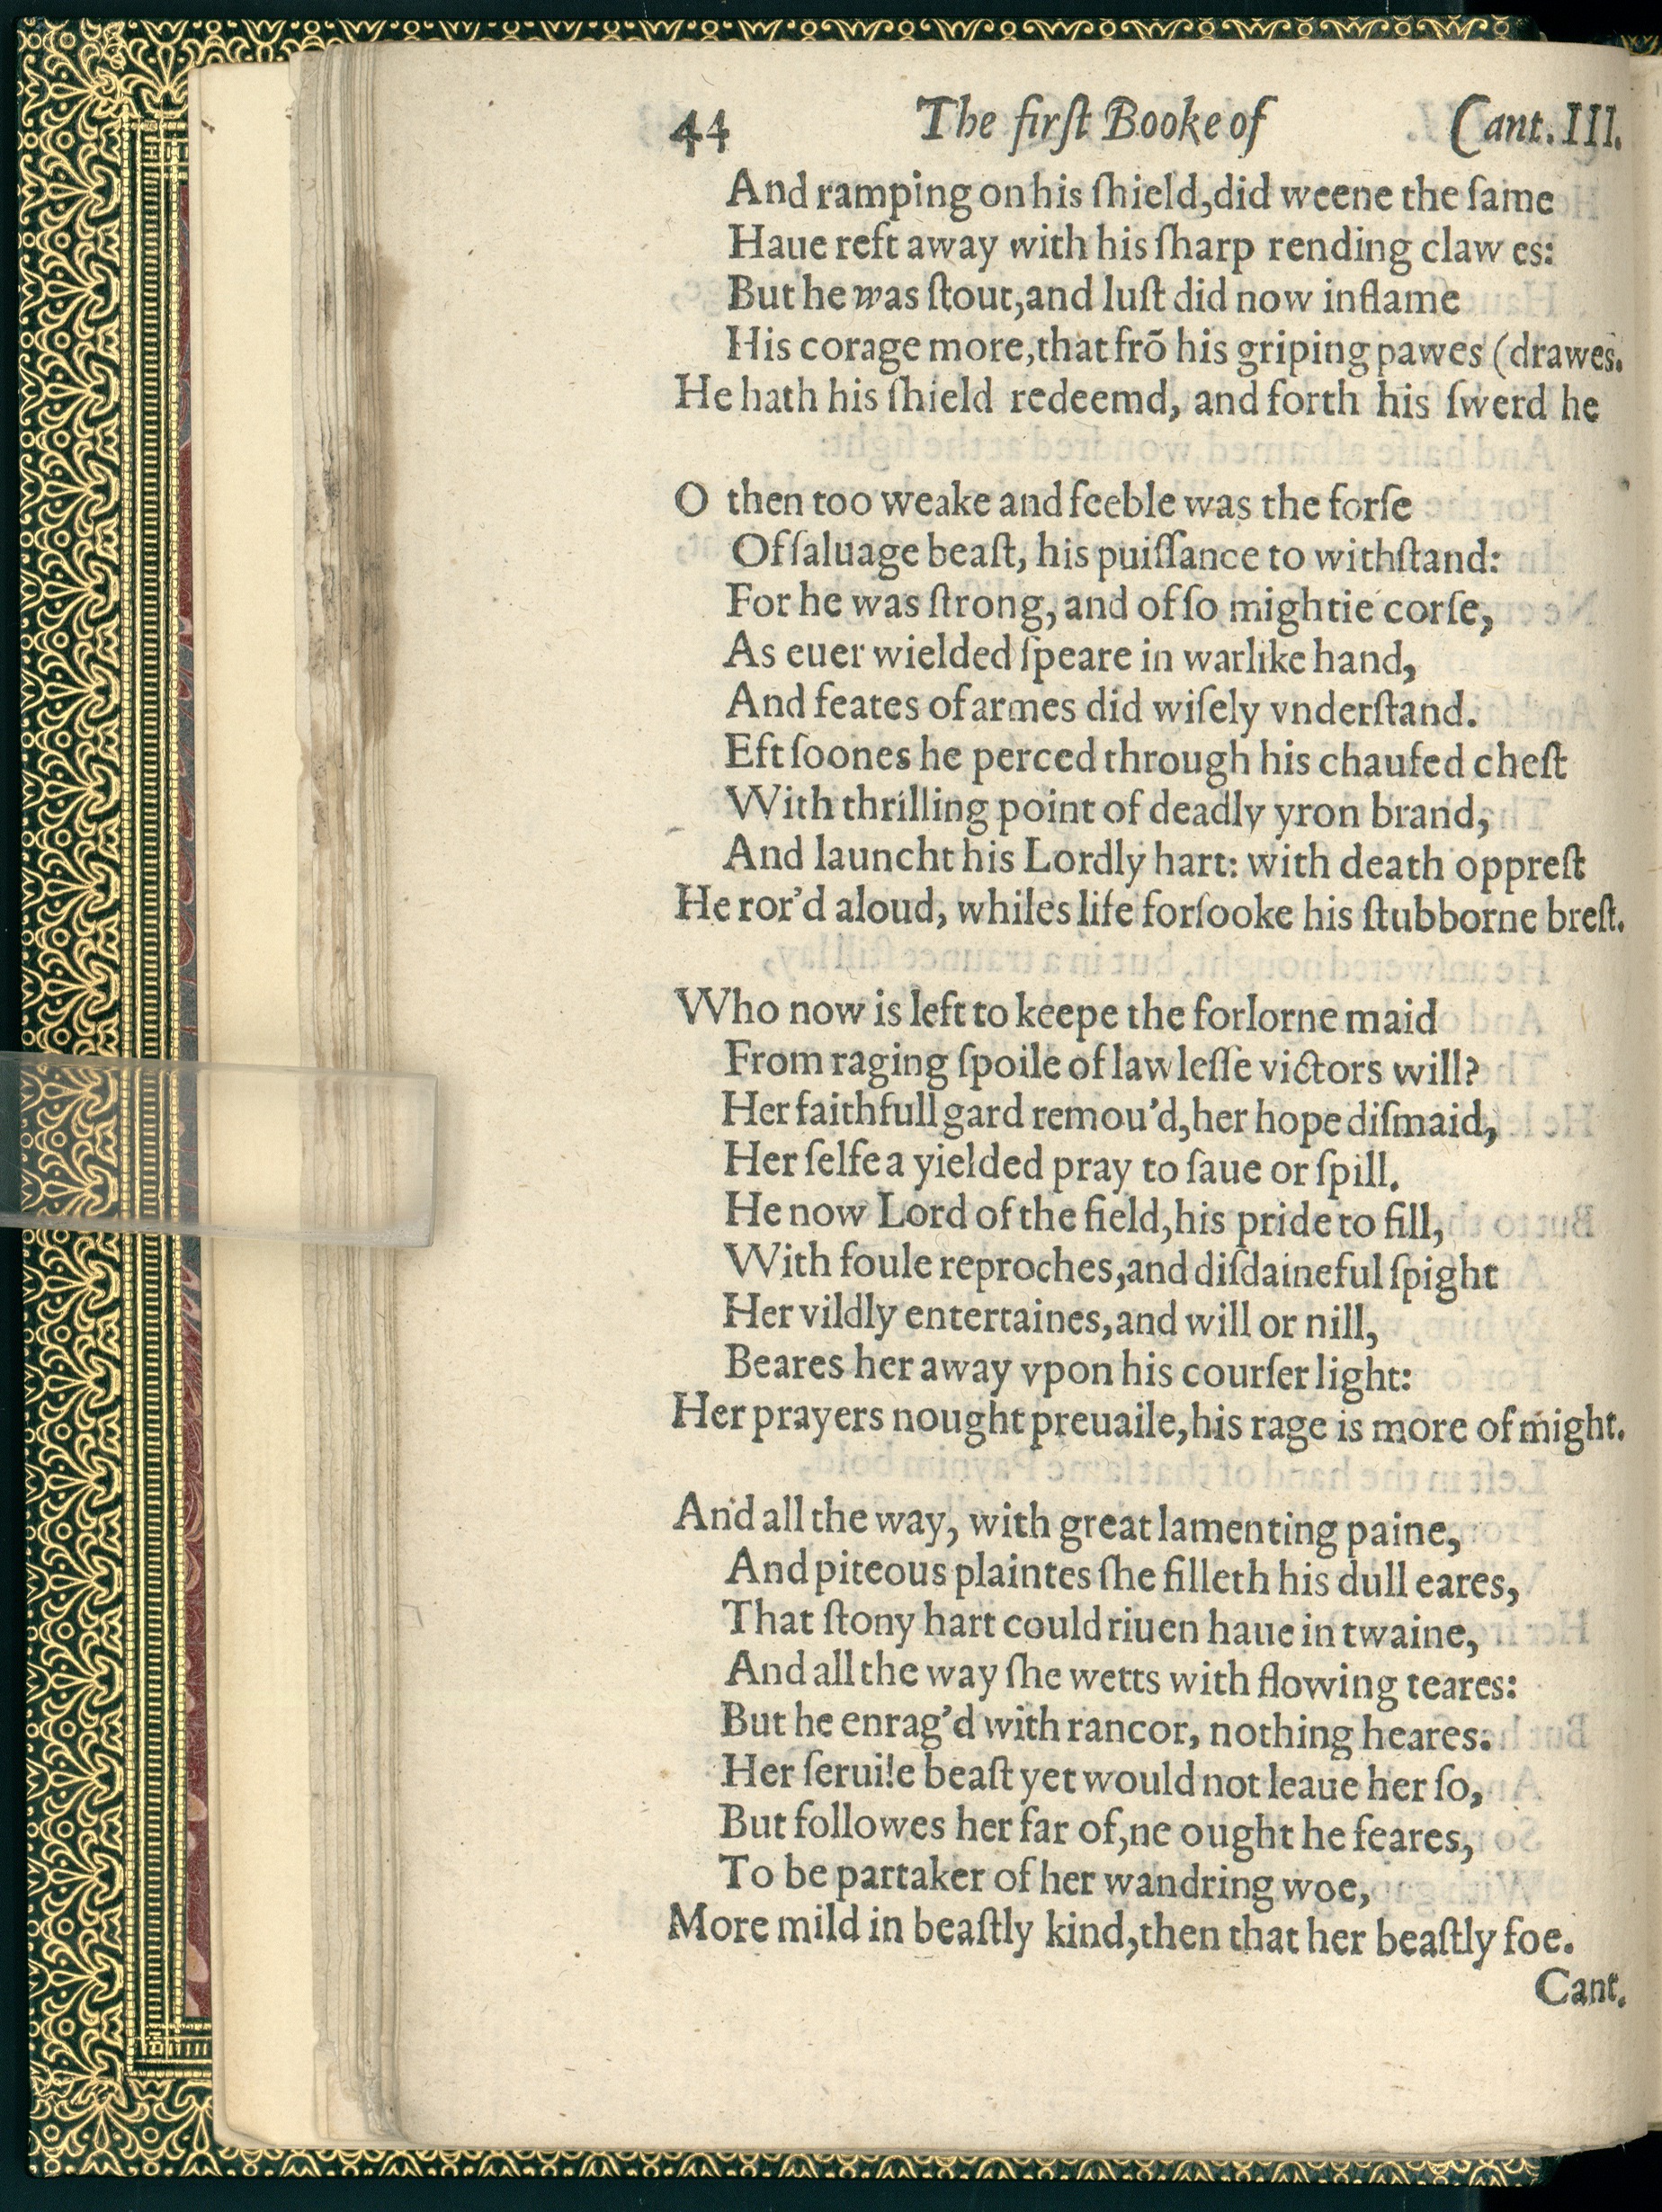 44 The firſt Booke of Cant. III.
And ramping on his ſhield, did weene the ſame
Haue reft away with his ſharp rending claw es:
But he was ſtout, and luſt did now inflame
His corage more, that frõ his griping pawes (drawes.
He hath his ſhield redeemd, and forth his ſwerd he
O then too weake and feeble was the forſe
Of ſaluage beaſt, his puiſſance to withſtand:
For he was ſtrong, and of ſo mightie corſe,
As euer wielded ſpeare in warlike hand,
And feates of armes did wiſely vnderſtand.
Eft ſoones he perced through his chaufed cheſt
With thrilling point of deadly yron brand,
And launcht his Lordly hart: with death oppreſt
He ror'd aloud, whiles life forſooke his ſtubborne breſt.
Who now is left to keepe the forlorne maid
From raging ſpoile of lawleſſe victors will?
Her faithfull gard remou'd, her hope diſmaid,
Her ſelfe a yielded pray to ſaue or ſpill.
He now Lord of the field, his pride to fill,
With foule reproches, and diſdaineful ſpight
Her vildly entertaines, and will or nill,
Beares her away vpon his courſer light:
Her prayers nought preuaile, his rage is more of might.
And all the way, with great lamenting paine,
And piteous plaintes ſhe filleth his dull eares,
That ſtony hart could riuen haue in twaine,
And all the way ſhe wetts with flowing teares:
But he enrag'd with rancor, nothing heares.
Her ſeruile beaſt yet would not leaue her ſo,
But followes her far of, ne ought he feares,
To be partaker of her wandring woe,
More mild in beaſtly kind, then that her beaſtly foe.
Cant.